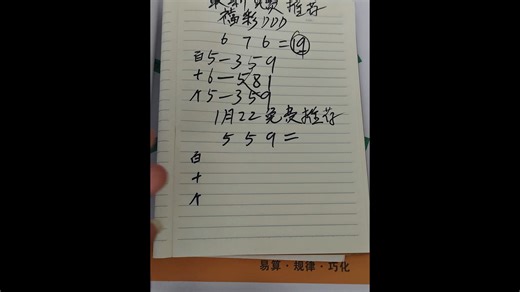 最新免费推荐
福彩DDD
6 7 6=⑲
百5-359
十6-581
个5-359
1月22免费推荐
5 5 9=
百
十
个
易算·规律·巧化